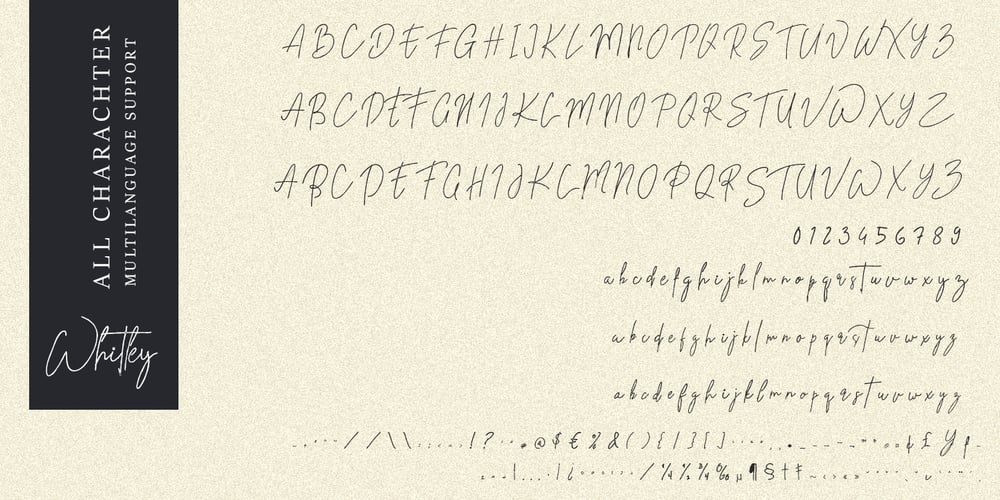 ALL CHARACHTER
MULTILANGUAGE SUPPORT
Whitley
ABCDEFGHIJKLMNOPQRSTUVWXYZ
ABCDEFGHIJKLMNOPQRSTUVWXYZ
ABCDEFGHIJKLMNOPQRSTUVWXYZ
0123456789
abcdefghijklmnopqrstuvwxyz
abcdefghijklmnopqrstuvwxyz
abcdefghijklmnopqrstuvwxyz
//\\ !? @$€%&(){|}[]
/¼½¾‰µ¶§†‡